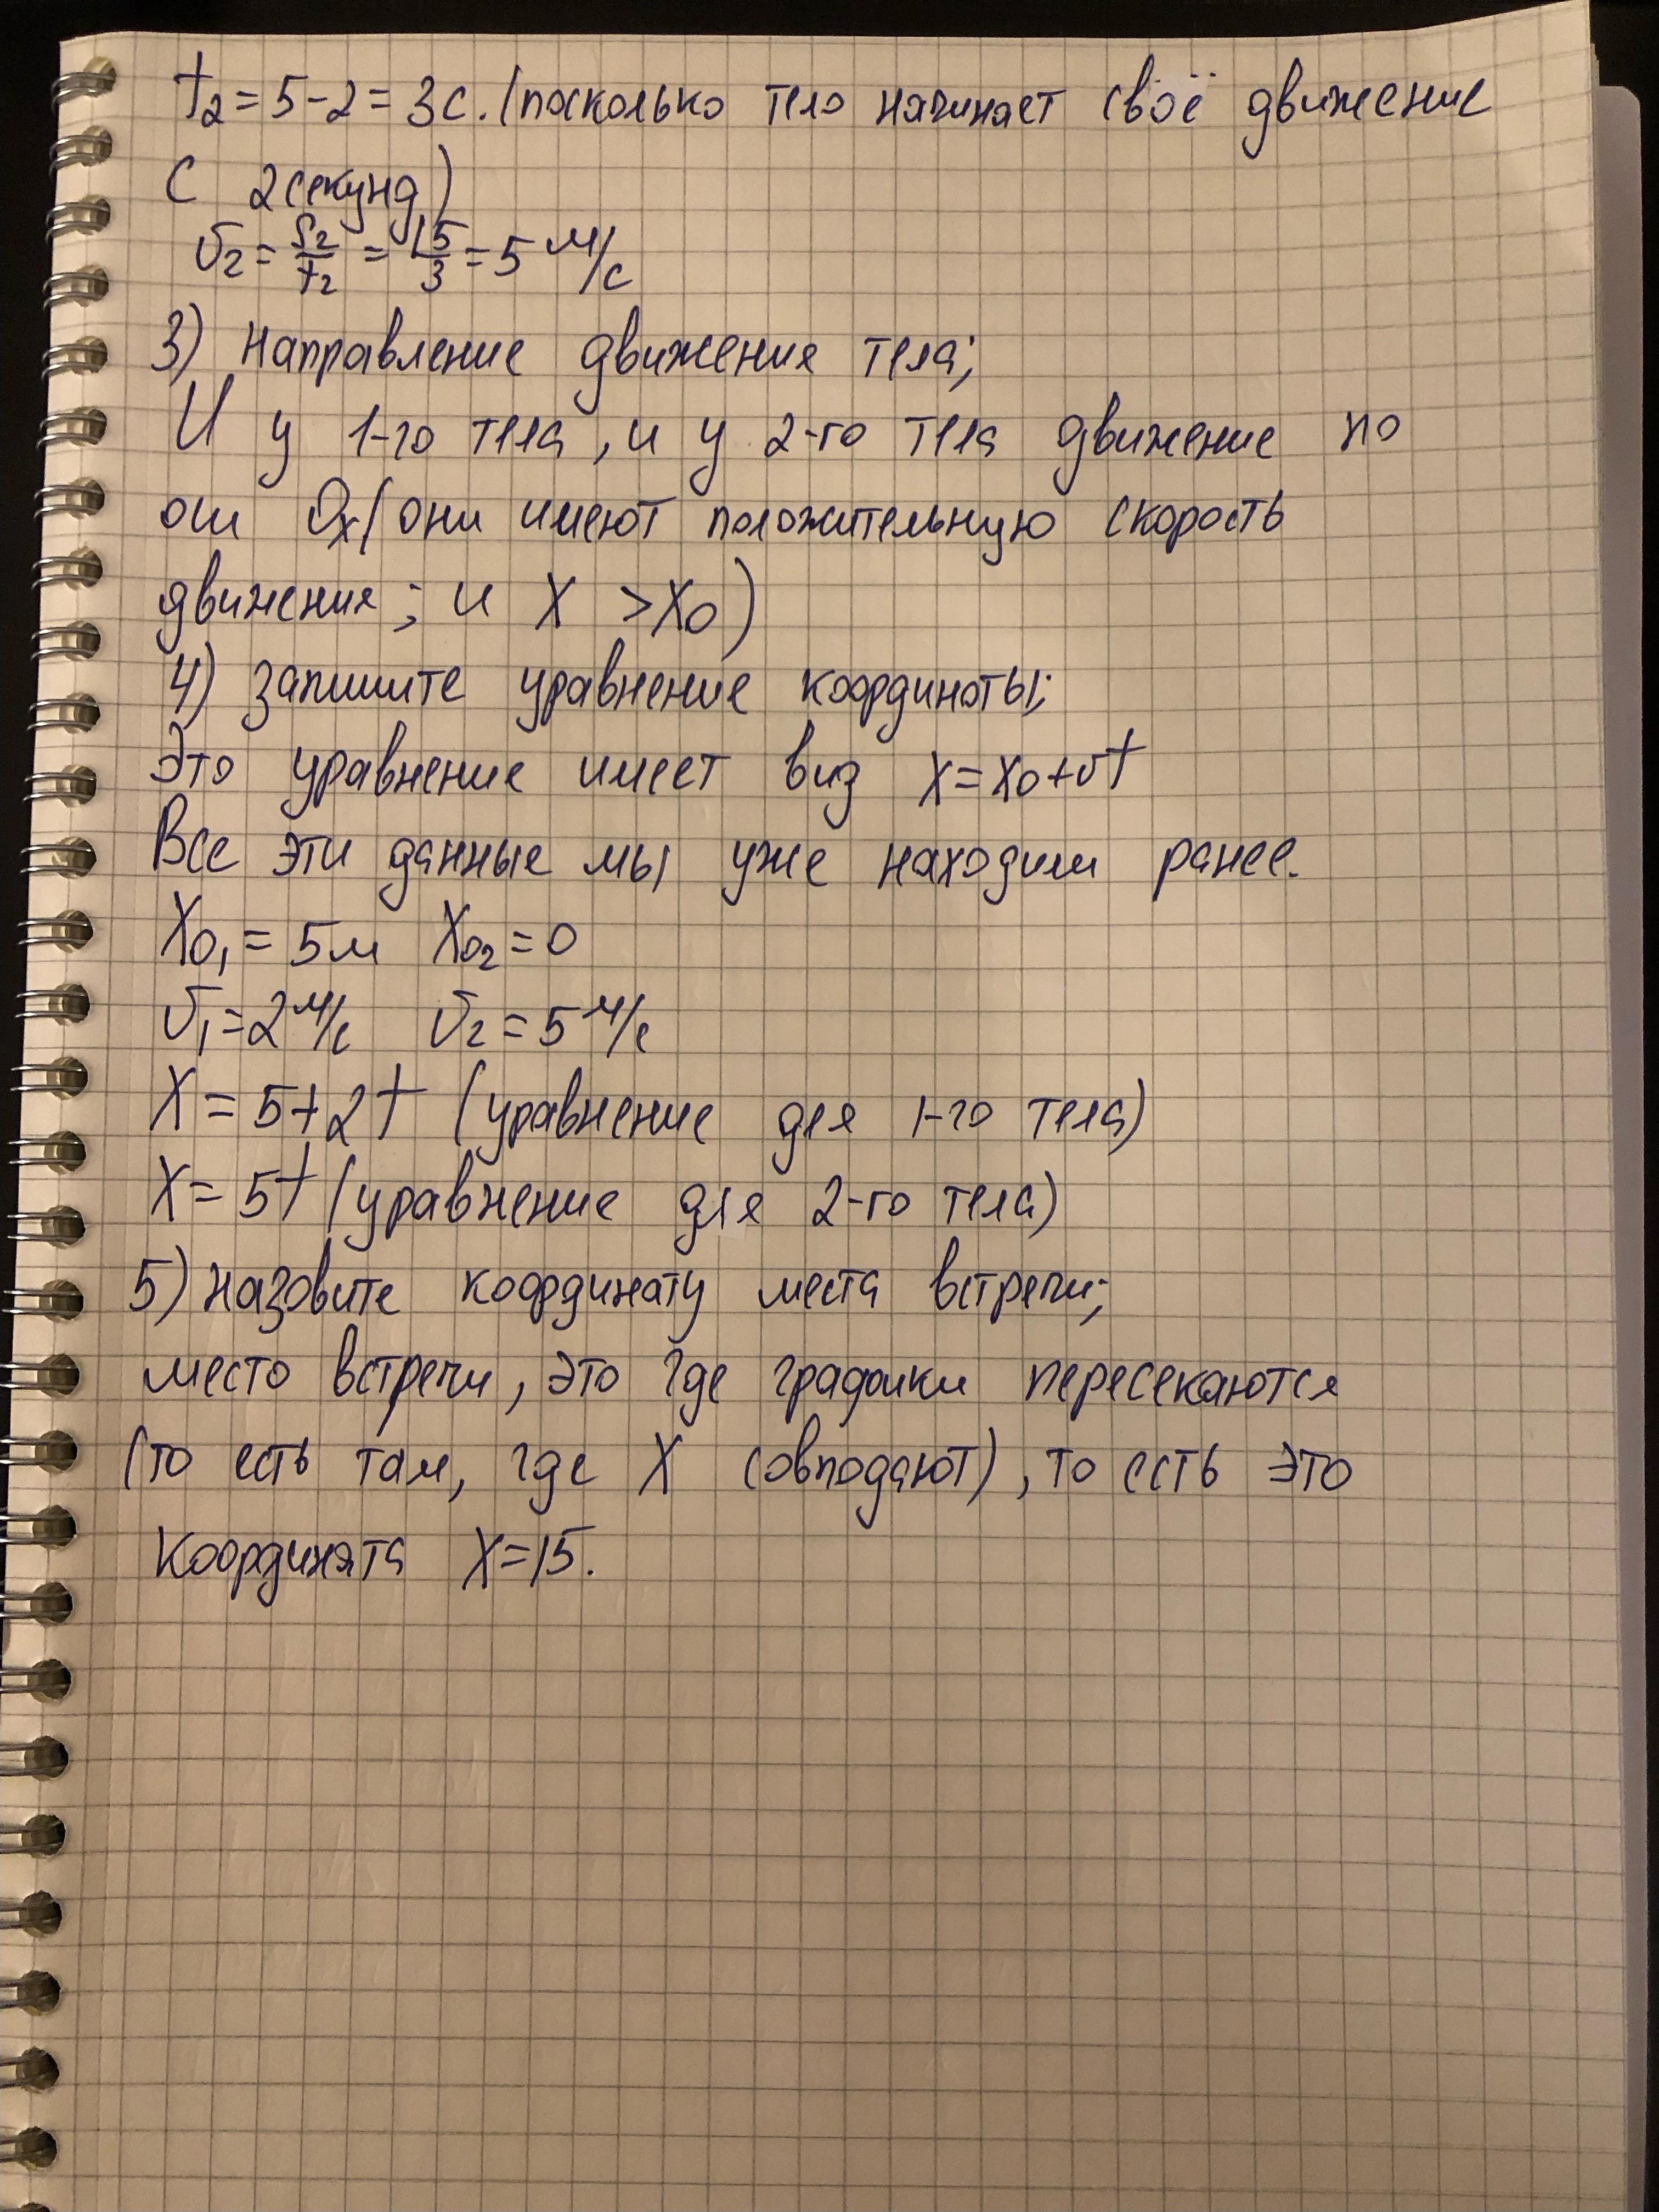 t₂ = 5 - 2 = 3с. (посколько тело начинает своё движение
с 2 секунд)
υ₂ = S₂/t₂ = 15/3 = 5 м/с
3) Направление движения тела;
И у 1-го тела, и у 2-го тела движение по
оси Ox (они имеют положительную скорость
движения; и X > X₀)
4) Запишите уравнение координаты;
Это уравнение имеет виз x = x₀ + υt
Все эти данные мы уже находим ранее.
X₀₁ = 5м X₀₂ = 0
υ₁ = 2 м/с υ₂ = 5 м/с
X = 5 + 2t (уравнение для 1-го тела)
X = 5t (уравнение для 2-го тела)
5) Назовите координату места встречи;
место встречи, это где графики пересекаются
(то есть там, где X совподают), то есть это
Координата X = 15.